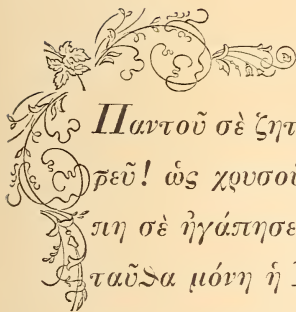 Παντοῦ σὲ ζητ
ῥεῦ! ὡς χρυσοῦ
πη σὲ ἠγάπησε
ταῦθα μόνη ἡ